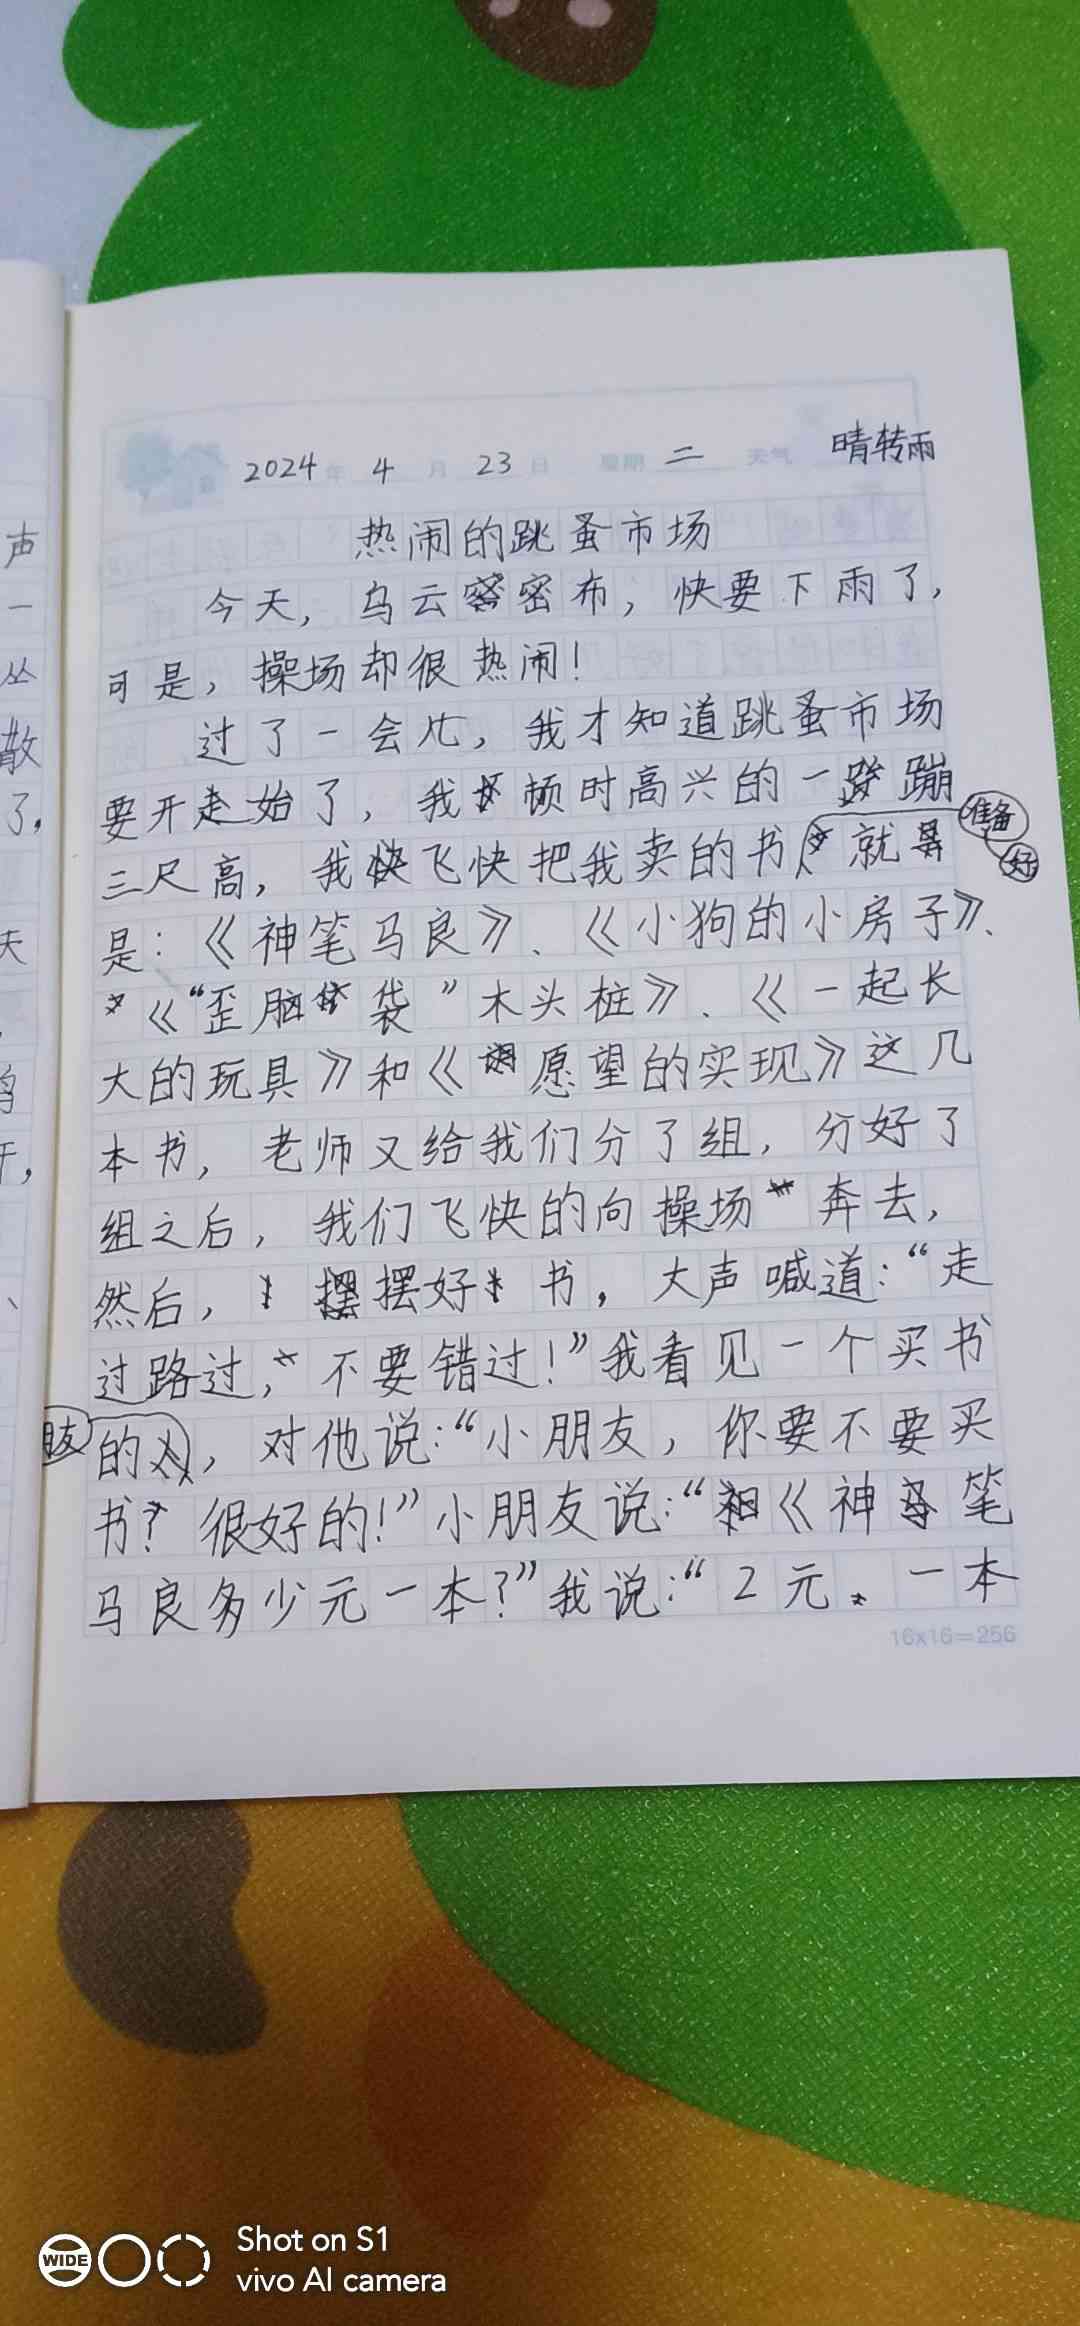 2024年 4月 23日 星期 二 天气 晴转雨
热闹的跳蚤市场
今天，乌云密布，快要下雨了，
可是，操场却很热闹！
过了一会儿，我才知道跳蚤市场
要开始了，我顿时高兴的一蹦
三尺高，我飞快把我卖的书准备好就
是：《神笔马良》、《小狗的小房子》、
《“歪脑袋”木头桩》、《一起长
大的玩具》和《愿望的实现》这几
本书，老师又给我们分了组，分好了
组之后，我们飞快的向操场奔去，
然后，摆好书，大声喊道：“走
过路过，不要错过！”我看见一个买书
的朋友，对他说：“小朋友，你要不要买
书？很好的！”小朋友说：“《神笔
马良多少元一本？”我说：“2元。一本
16x16=256
声
一
丛
散
了，
天
Shot on S1
vivo AI camera
WIDE